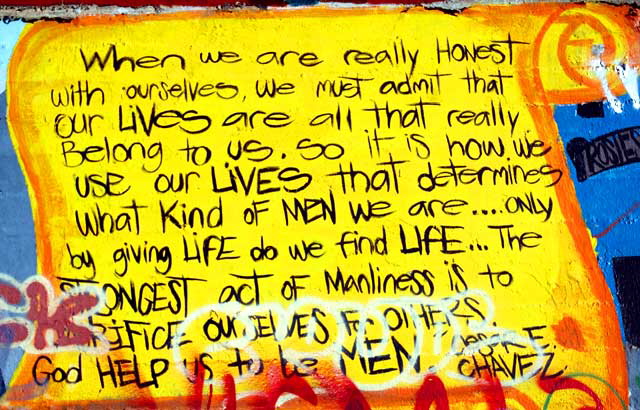 When we are really HONEST
with ourselves, we must admit that
our LIVES are all that really
Belong to us. So it is how we
use our LIVES that determines
what kind of MEN we are....only
by giving LIFE do we find LIFE...The
STRONGEST act of Manliness is to
SACRIFICE OURSELVES FOR OTHERS.
God HELP us to be MEN. Cesar E.
CHAVEZ